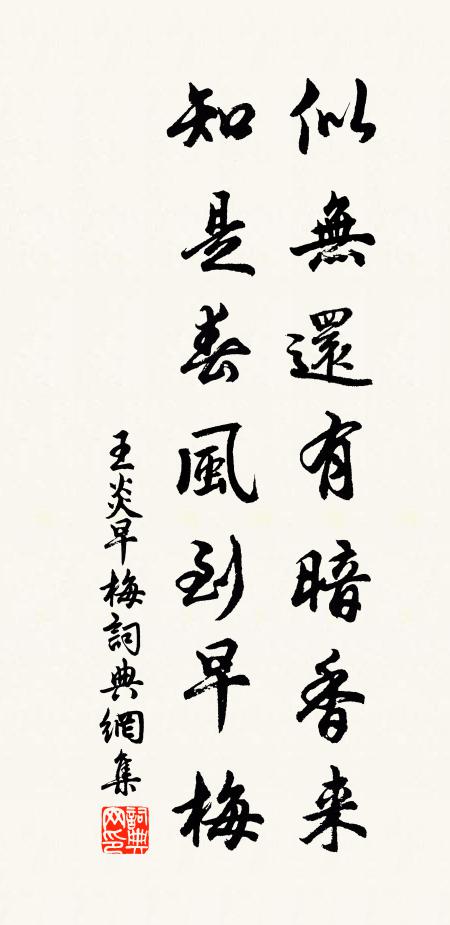 似無還有暗香来
知是春風到早梅
王炎早梅詞典網集
詞典网印